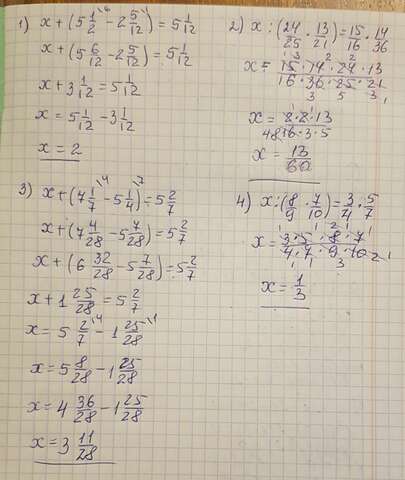 1) x + (5 1/2 \6 - 2 5/12 \1) = 5 1/12
x + (5 6/12 - 2 5/12) = 5 1/12
x + 3 1/12 = 5 1/12
x = 5 1/12 - 3 1/12
x = 2
2) x : (24/25 · 13/21) = 15/16 · 14/36
x = 15 · 14 · 24 · 13 / 16 · 36 · 25 · 21
x = 2 · 2 · 13 / 16 · 3 · 5
x = 13/60
3) x + (7 1/7 \4 - 5 1/4 \7) = 5 2/7
x + (7 4/28 - 5 7/28) = 5 2/7
x + (6 32/28 - 5 7/28) = 5 2/7
x + 1 25/28 = 5 2/7
x = 5 2/7 \4 - 1 25/28 \1
x = 5 8/28 - 1 25/28
x = 4 36/28 - 1 25/28
x = 3 11/28
4) x : (8/9 · 7/10) = 3/4 · 5/7
x = 3 · 5 · 8 · 7 / 4 · 7 · 9 · 10
x = 1/3